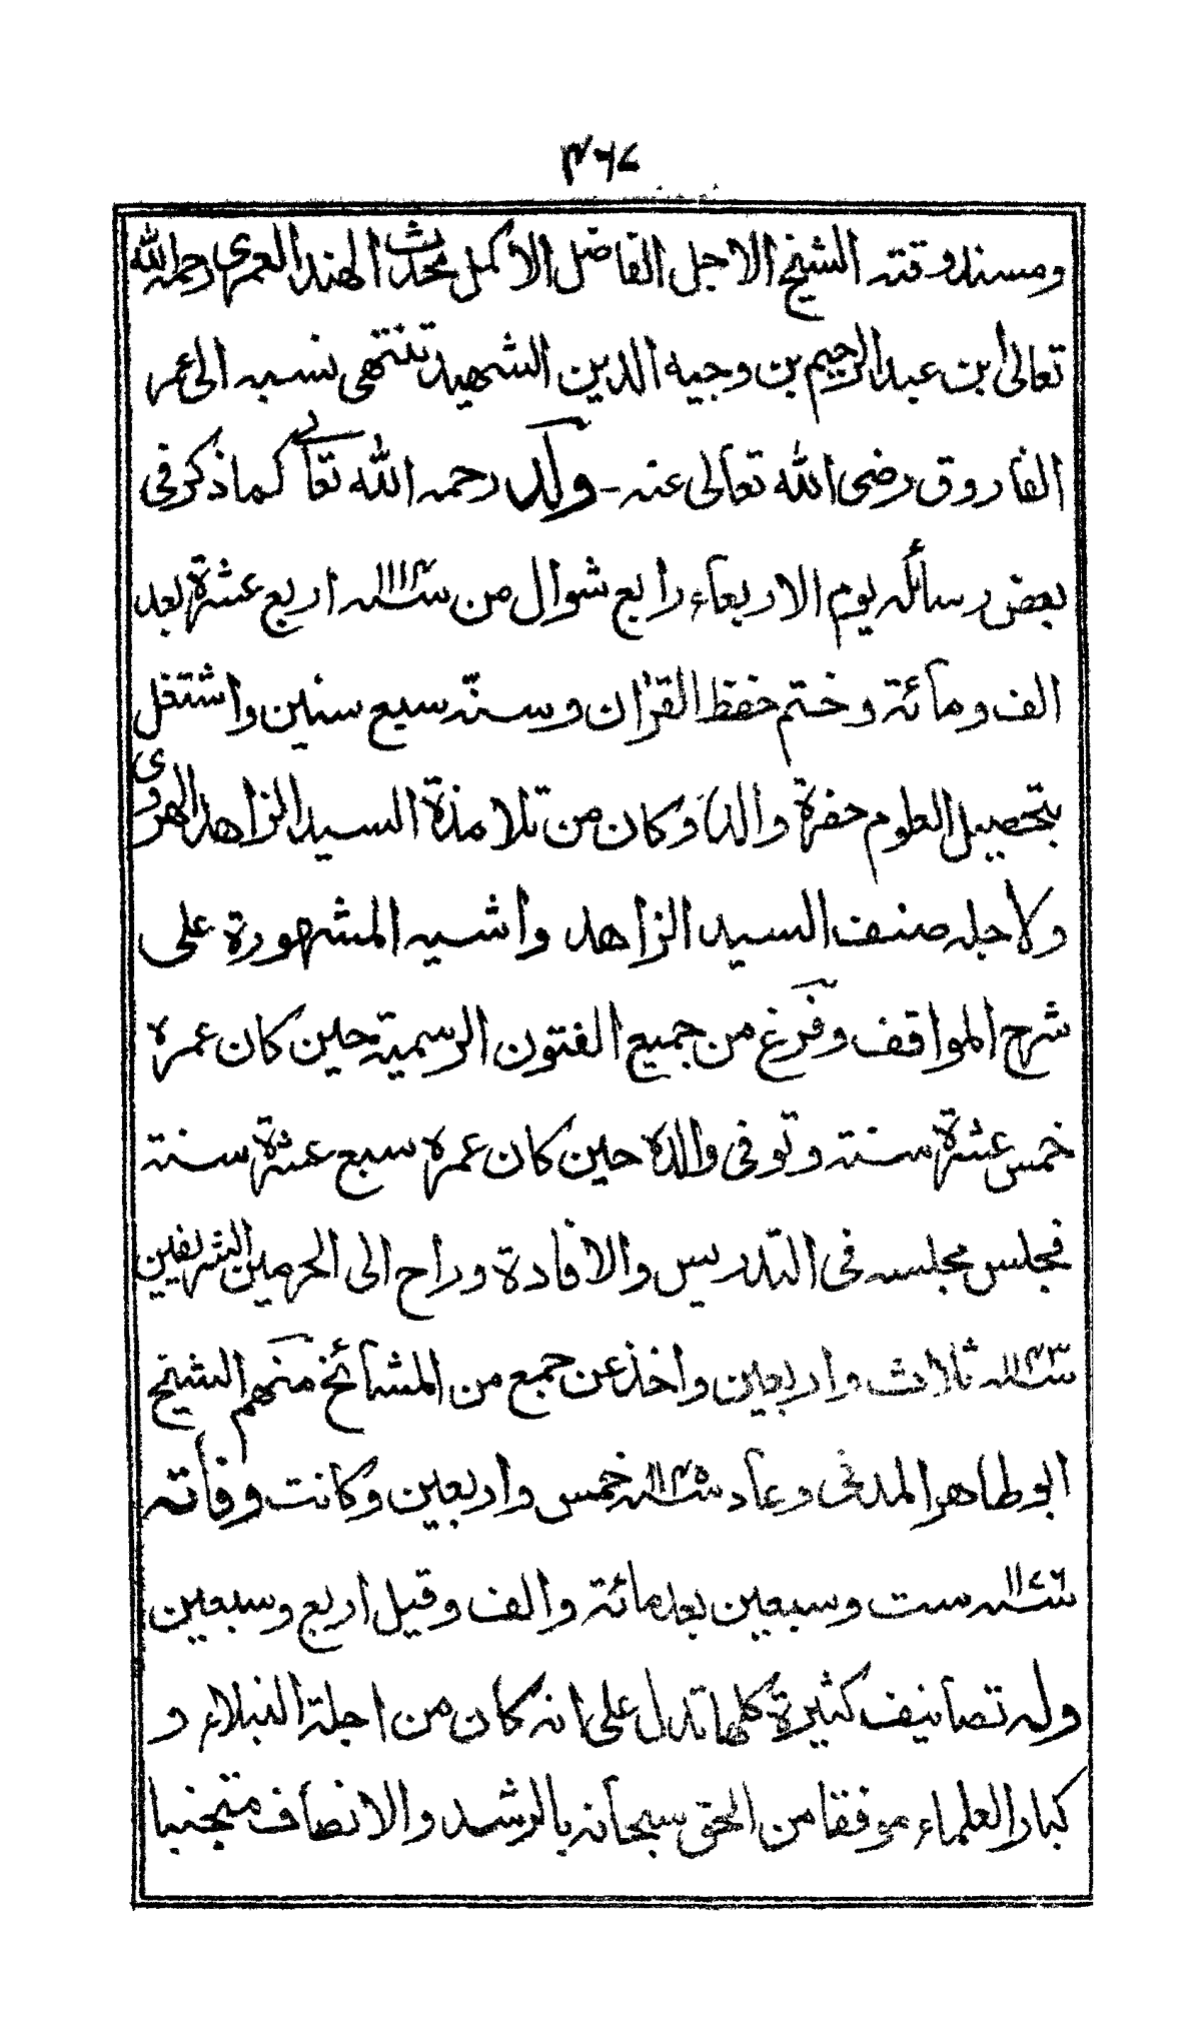 ٣٦٧
ومسند وقته الشيخ الاجل الفاضل الاكمل محدث الهند العمرى رحمه الله
تعالى ابن عبد الرحيم بن وجيه الدين الشهيد تنتهى نسبه الى عمر
الفاروق رضى الله تعالى عنه - ولد رحمه الله تعالى كما ذكر فى
بعض رسائله يوم الاربعاء رابع شوال من سنة ١١١٤ اربع عشرة بعد
الف ومائة وختم حفظ القرآن وسنه سبع سنين واشتغل
بتحصيل العلوم حضرة والده وكان من تلامذة السيد الزاهد الهروى
ولاجله صنف السيد الزاهد واشيه المشهورة على
شرح المواقف وفرغ من جميع الفنون الرسمية حين كان عمره
خمس عشرة سنة وتوفى والده حين كان عمره سبع عشرة سنة
فجلس مجلسه فى التدريس والافادة وراح الى الحرمين الشريفين
سنة ١١٤٣ ثلاث واربعين واخذ عن جمع من المشائخ منهم الشيخ
ابو طاهر المدنى وعاد سنة ١١٤٥ خمس واربعين وكانت وفاته
سنة ١١٧٦ ست وسبعين بعد مائة والف وقيل اربع وسبعين
وله تصانيف كثيرة كلها تدل على انه كان من اجلة النبلاء و
كبار العلماء موفقا من الحق سبحانه بالرشد والانصاف متجنبا